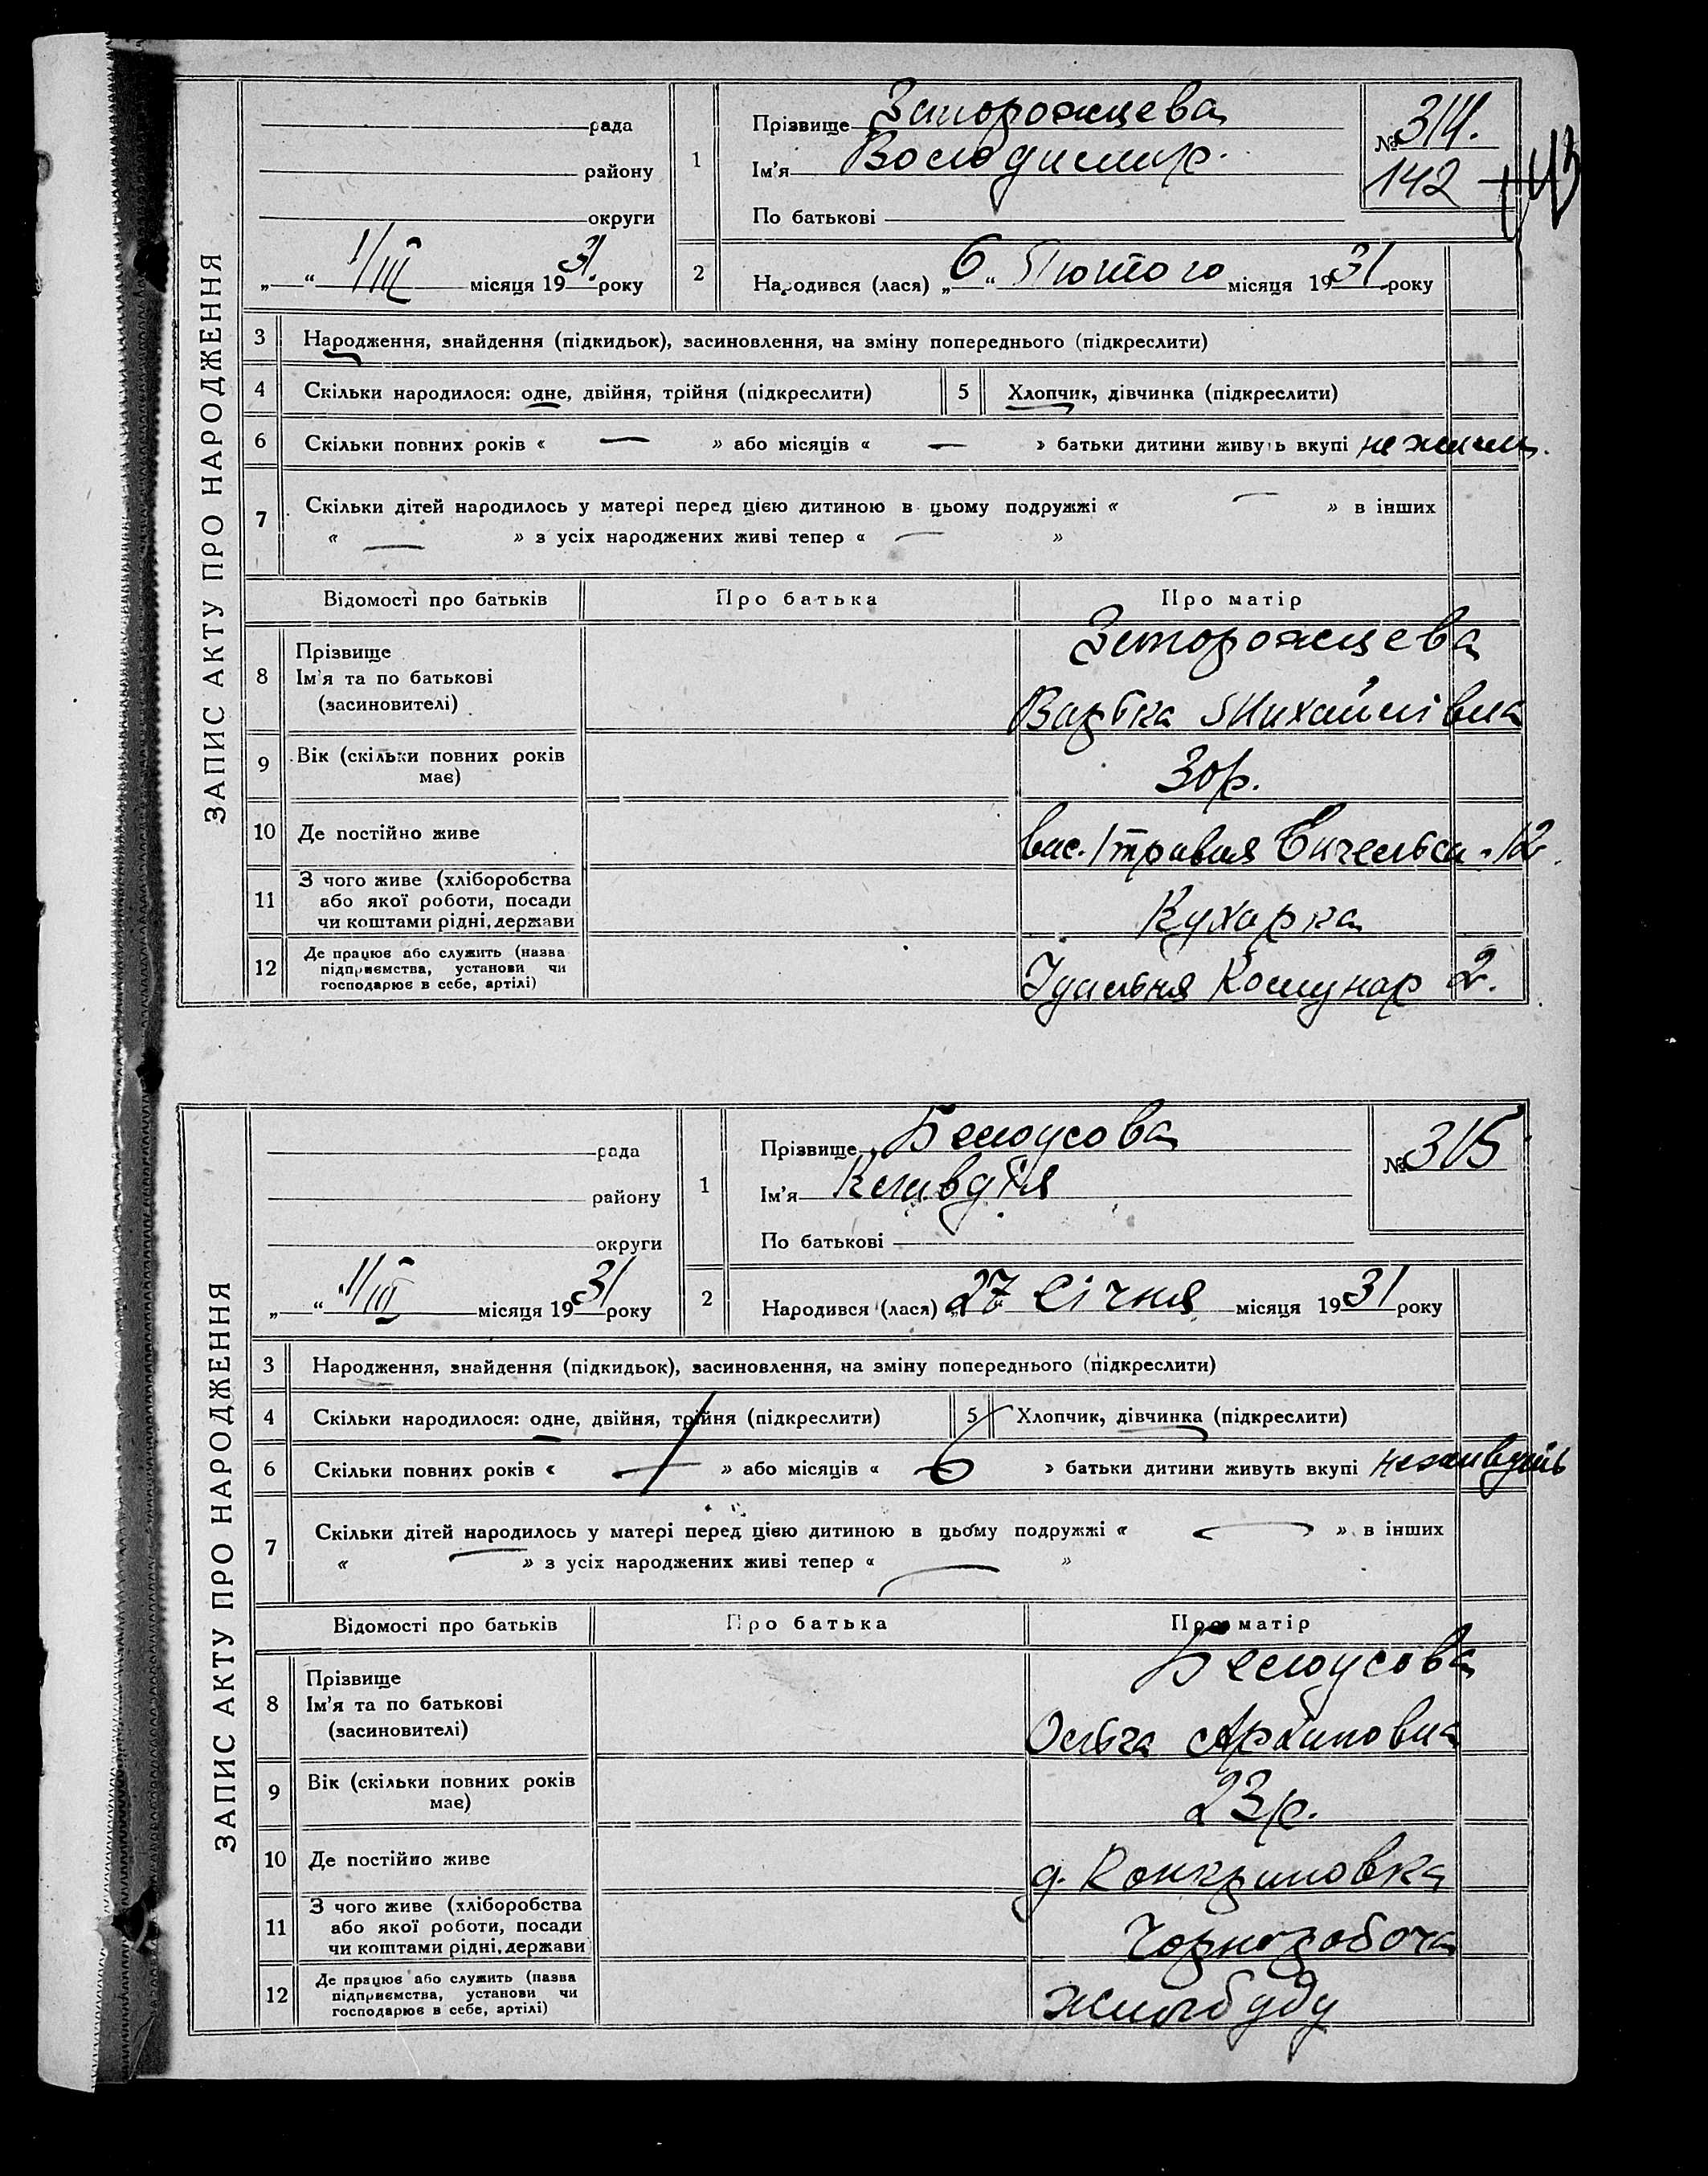 ЗАПИС АКТУ ПРО НАРОДЖЕННЯ
рада
району
округи
„ “ 1/III місяця 1931 року
1
Прізвище Запорожцева
Ім'я Володимир.
По батькові
№ 314.
142
2
Народився (лася) „6“ Лютого місяця 1931 року
3 Народження, знайдення (підкидьок), засиновлення, на зміну попереднього (підкреслити)
4 Скільки народилося: одне, двійня, трійня (підкреслити) 5 Хлопчик, дівчинка (підкреслити)
6 Скільки повних років « — » або місяців « — » батьки дитини живуть вкупі не жили.
7 Скільки дітей народилось у матері перед цією дитиною в цьому подружжі « — » в інших
« — » з усіх народжених живі тепер « — »
Відомості про батьків Про батька Про матір
8 Прізвище
Ім'я та по батькові
(засновителі)
Запорожцева
Варька Михайлівна
9 Вік (скільки повних років має)
30р.
10 Де постійно живе
вис. 1 травня 12
11 З чого живе (хліборобства
або якої роботи, посади
чи коштами рідні, держави
Кухарка
12 Де працює або служить (назва
підприємства, установи чи
господарює в себе, артілі)
Їдальня Комунар 2.
ЗАПИС АКТУ ПРО НАРОДЖЕННЯ
рада
району
округи
„ “ 1/III місяця 1931 року
1
Прізвище Белоусова
Ім'я Клавдія
По батькові
№ 315
2
Народився (лася) „27 Січня місяця 1931 року
3 Народження, знайдення (підкидьок), засиновлення, на зміну попереднього (підкреслити)
4 Скільки народилося: одне, двійня, трійня (підкреслити) 5 Хлопчик, дівчинка (підкреслити)
6 Скільки повних років « — » або місяців « » батьки дитини живуть вкупі не живуть
7 Скільки дітей народилось у матері перед цією дитиною в цьому подружжі « — » в інших
« — » з усіх народжених живі тепер « — »
Відомості про батьків Про батька Про матір
8 Прізвище
Ім'я та по батькові
(засиновителі)
Белоусова
Ольга Архиповна
9 Вік (скільки повних років має)
23р.
10 Де постійно живе
11 З чого живе (хліборобства
або якої роботи, посади
чи коштами рідні, держави
Чорноробоча
12 Де працює або служить (назва
підприємства, установи чи
господарює в себе, артілі)
Жилбуду